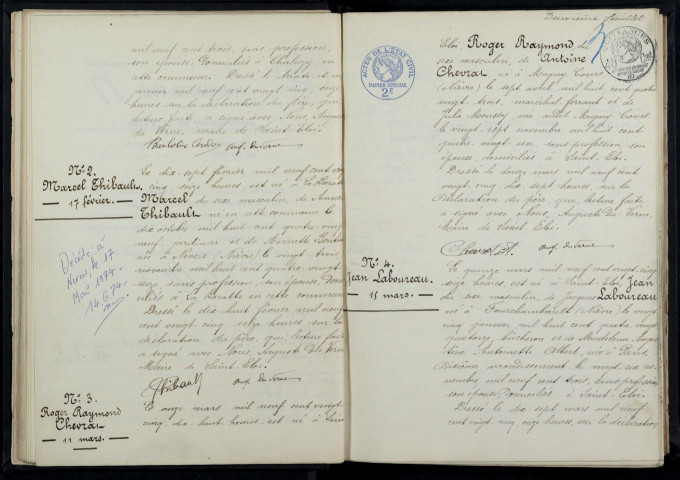 mil neuf cent trois, sans profession,
son épouse, domiciliés à Chaluzy en
cette commune. Dressé le trente et un
janvier mil neuf cent vingt cinq, onze
heures sur la déclaration du père, qui
lecture faite, a signé avec Nous, Auguste
du Verne, maire de Saint Eloi.
Aug. du Verne
N° 2.
Marcel Thibault.
17 février.
Décédé à
le 17
Mai 1974.
14.6.74.
Le dix-sept février mil neuf cent vingt
cinq, onze heures, est né à La Baratte
Marcel du sexe masculin, de
Thibault né en cette commune le
dix octobre mil huit cent quatre-vingt
neuf, jardinier et de
née à Nevers (Nièvre) le vingt trois
novembre mil huit cent quatre-vingt
seize sans profession, son épouse, domi
ciliés à La Baratte en cette commune
Dressé le dix huit février mil neuf
cent vingt cinq, seize heures sur la
déclaration du père, qui, lecture faite
a signé avec Nous, Auguste du Verne
Maire de Saint-Eloi.
Thibault Aug. du Verne
N° 3.
Roger Raymond
Chevrat
11 mars.
Le onze mars mil neuf cent vingt
cinq, dix-huit heures, est né à Saint
Deuxième feuillet
ACTES DE L'ETAT CIVIL
PAPIER SPECIAL
2F
Eloi Roger Raymond du
sexe masculin, de Antoine
Chevrat né à Magny Cours
(Nièvre) le sept avril mil huit cent quatre
vingt trois, maréchal ferrant et de
Julia Moussy, née audit Magny-Cours
le vingt sept novembre mil huit cent
quatre vingt six, sans profession, son
épouse, domiciliés à Saint-Eloi.
Dressé le douze mars mil neuf cent
vingt cinq dix sept heures, sur la
déclaration du père, qui, lecture faite
a signé avec Nous, Auguste du Verne,
Maire de Saint Eloi.
Chevrat A. Aug. du Verne
N° 4.
Jean Laboureau.
15 mars.
Le quinze mars mil neuf cent vingt cinq
seize heures, est né à Saint Eloi, Jean
du sexe masculin, de Jacques Laboureau
né à Fourchambault (Nièvre) le vingt
cinq janvier mil huit cent quatre vingt
quatorze, et de Magdeleine Augus
tine Antoinette Albert, née à Paris,
dixième arrondissement le vingt six no
vembre mil neuf cent trois, sans profession
son épouse, domiciliés à Saint-Eloi.
Dressé le dix sept mars mil neuf
cent vingt cinq, onze heures, sur la déclaration